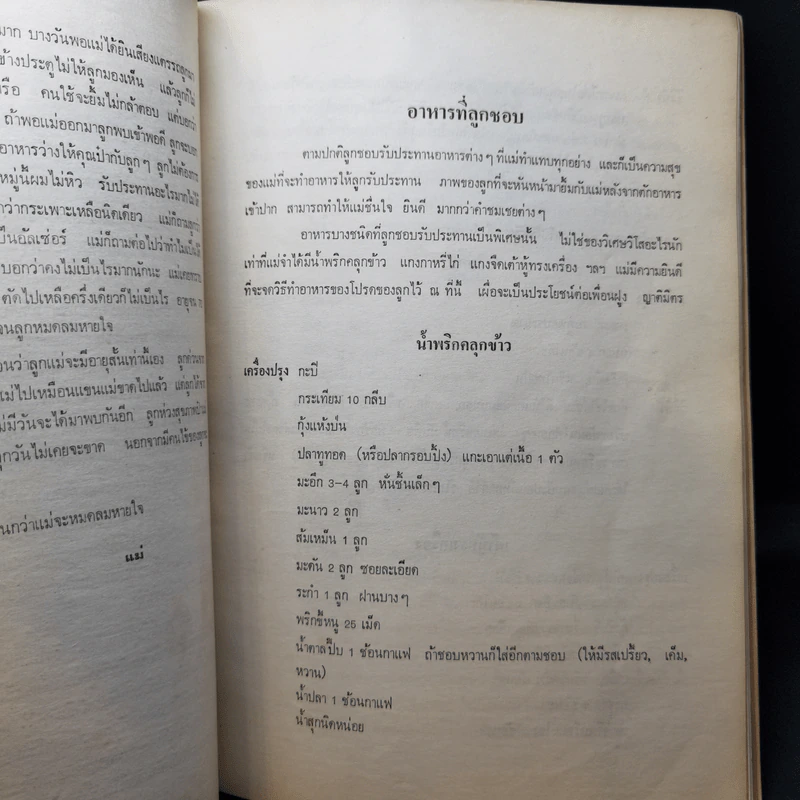 มาก บางวันพอแม่ได้ยินเสียงแตรรถลูกมา
ข้างประตูไม่ให้ลูกมองเห็น แล้วลูกก็ไม่
หรือ คนใช้จะยิ้มไม่กล้าตอบ แต่บอกว่า
ถ้าพอแม่ออกมาลูกพบเข้าพอดี ลูกจะบอก
อาหารว่างให้คุณป้ากับลูกๆ ลูกไม่ต้องการ
หมู่นี้ผมไม่หิว รับประทานอะไรมากไม่ได้
กว่ากระเพาะเหลือนิดเดียว แม่ก็ถามลูกว่า
เป็นอัลเซ่อร์ แม่ก็ถามต่อไปว่าทำไมเป็นได้
บอกว่าคงไม่เป็นไรมากนักนะ
ตัดไปเหลือครึ่งเดียวก็ไม่เป็นไร
จนลูกหมดลมหายใจ
อนว่าลูกแม่จะมีอายุสั้นเท่านี้เอง
แม่ไปเหมือนแขนแม่ขาดไปแล้ว
ไม่มีวันจะได้มาพบกันอีก
ทุกวันไม่เคยจะขาด
นกว่าแม่จะหมดลมหายใจ
แม่
อาหารที่ลูกชอบ
ตามปกติลูกชอบรับประทานอาหารต่างๆ ที่แม่ทำแทบทุกอย่าง และก็เป็นความสุข
ของแม่ที่จะทำอาหารให้ลูกรับประทาน ภาพของลูกที่จะหันหน้ามายิ้มกับแม่หลังจากตักอาหาร
เข้าปาก สามารถทำให้แม่ชื่นใจ ยินดี มากกว่าคำชมเชยต่างๆ
อาหารบางชนิดที่ลูกชอบรับประทานเป็นพิเศษนั้น ไม่ใช่ของวิเศษวิโสอะไรนัก
เท่าที่แม่จำได้มีน้ำพริกคลุกข้าว แกงกาหรี่ไก่ แกงจืดเต้าหู้ทรงเครื่อง ฯลฯ แม่มีความยินดี
ที่จะจดวิธีทำอาหารของโปรดของลูกไว้ ณ ที่นี้ เผื่อจะเป็นประโยชน์ต่อเพื่อนฝูง ญาติมิตร
น้ำพริกคลุกข้าว
เครื่องปรุง กะปิ
กระเทียม 10 กลีบ
กุ้งแห้งป่น
ปลาทูทอด (หรือปลากรอบปิ้ง) แกะเอาแต่เนื้อ 1 ตัว
มะอึก 3-4 ลูก หั่นชิ้นเล็กๆ
มะนาว 2 ลูก
ส้มเหม็น 1 ลูก
มะดัน 2 ลูก ซอยละเอียด
ระกำ 1 ลูก ฝานบางๆ
พริกขี้หนู 25 เม็ด
น้ำตาลปีบ 1 ช้อนกาแฟ ถ้าชอบหวานก็ใส่อีกตามชอบ (ให้มีรสเปรี้ยว, เค็ม,
หวาน)
น้ำปลา 1 ช้อนกาแฟ
น้ำสุกนิดหน่อย